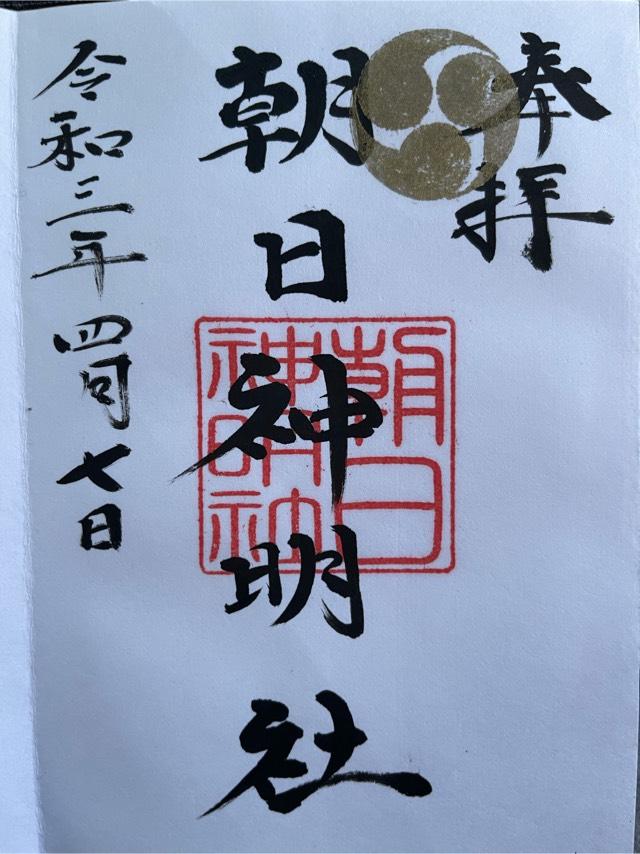 奉拝
朝日神明社
朝日
神明社
令和三年四月七日